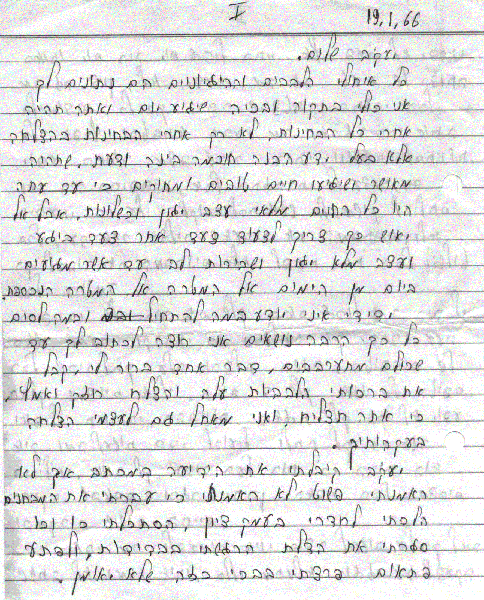 V
19.1.66
יעקב שלום.
כל איחולי הלבביים והגיוניים הם נתונים לך
אני כולי בתקוה ובכיה שיגיע יום ואתה תהיה
אחרי כל הבחינות לא רק אחרי הבחינות בהצלחה
אלא בעל ידע הבנה חוכמה בינה ודעת, שתהיה
מאושר ושיגיעו חיים טובים ומתוקים כי עד עתה
היו כל החיים מלאי עצב יגון וכשלונות, אבל אל
יאוש כך צריך לצעוד צעד אחר צעד ביגע
ועצב מלא יגון ושרירות לב עד אשר מגיעים
ביום מן הימים אל המטרה אל המטרה הנכספת.
ידידי איני יודע במה להתחיל ובמה לסיים
כל כך הרבה נושאים אני רוצה לכתוב לך עד
שכולם מתערבבים, דבר אחד ברור לי, קבל
את ברכותי הלבביות עלה והצלח חזק ואמץ,
כי אתה תצליח, ואני מאחל גם לעצמי הצלחה
בעקבותיך.
יעקב קיבלתי את הידיעה במכתב אך לא
האמנתי פשוט לא האמנתי כי עברתי את המבחנים
הלכתי לחדרי בעמק ציון, הסתכלתי כו וכו
סגרתי את הדלת הרגשתי בבדידות, ולפתע
פתאום פרצתי בבכי כזה שלא יאומן.